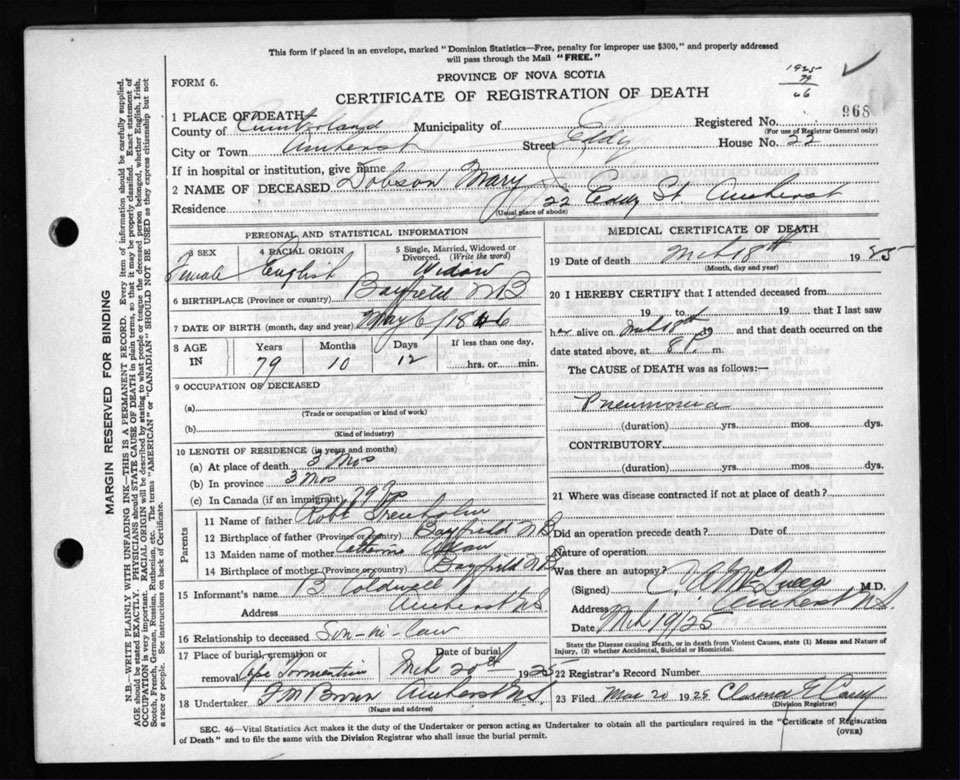 This form if placed in an envelope, marked "Dominion Statistics—Free, penalty for improper use $300," and properly addressed
will pass through the Mail "FREE."
PROVINCE OF NOVA SCOTIA
FORM 6.
CERTIFICATE OF REGISTRATION OF DEATH
1925
79
66
968
1 PLACE OF DEATH
County of Cumberland Municipality of
Registered No.
(For use of Registrar General only)
City or Town Amherst Street Eddy House No. 22
If in hospital or institution, give name
2 NAME OF DECEASED Dobson Mary
Residence 22 Eddy St Amherst
(Usual place of abode)
PERSONAL AND STATISTICAL INFORMATION
3 SEX 4 RACIAL ORIGIN 5 Single, Married, Widowed or
Divorced. (Write the word)
Female English Widow
6 BIRTHPLACE (Province or country) Bayfield N B
7 DATE OF BIRTH (month, day and year) May 6/1846
8 AGE IN Years Months Days If less than one day,
79 10 12 hrs. or min.
9 OCCUPATION OF DECEASED
(a)
(Trade or occupation or kind of work)
(b)
(Kind of industry)
10 LENGTH OF RESIDENCE (in years and months)
(a) At place of death 3 Mos
(b) In province 3 Mos
(c) In Canada (if an immigrant) 79
Parents
11 Name of father Robt Trenholm
12 Birthplace of father (Province or country) Bayfield N B
13 Maiden name of mother
14 Birthplace of mother (Province or country) Bayfield N B
15 Informant's name B Coldwell
Address Amherst N.S.
16 Relationship to deceased Son-in-law
17 Place of burial, cremation or Date of burial
removal Cape Tormentine Mch 20th 1925
18 Undertaker F M Brown Amherst N.S.
(Name and address)
MEDICAL CERTIFICATE OF DEATH
19 Date of death Mch 18th 1925
(Month, day and year)
20 I HEREBY CERTIFY that I attended deceased from
19 to 19 that I last saw
her alive on Mch 18th 19 and that death occurred on the
date stated above, at 8 P. m.
The CAUSE of DEATH was as follows:—
Pneumonia
(duration) yrs. mos. dys.
CONTRIBUTORY
(duration) yrs. mos. dys.
21 Where was disease contracted if not at place of death?
Did an operation precede death? Date of
Nature of operation
Was there an autopsy?
(Signed) M.D.
Address Amherst N.S.
Date Mch 19/25
State the Disease causing Death, or in death from Violent Causes, state (1) Means and Nature of
Injury, (2) whether Accidental, Suicidal or Homicidal.
22 Registrar's Record Number
23 Filed Mar 20 1925 Clarence E Casey
(Division Registrar)
SEC. 46—Vital Statistics Act makes it the duty of the Undertaker or person acting as Undertaker to obtain all the particulars required in the "Certificate of Registration
of Death" and to file the same with the Division Registrar who shall issue the burial permit.
(OVER)
MARGIN RESERVED FOR BINDING
N.B.—WRITE PLAINLY WITH UNFADING INK—THIS IS A PERMANENT RECORD. Every item of information should be carefully supplied.
AGE should be stated EXACTLY. PHYSICIANS should STATE CAUSE OF DEATH in plain terms, so that it may be properly classified. Exact statement of
OCCUPATION is very important. RACIAL ORIGIN will be described by stating to what people or tongue the deceased person belonged, whether English, Irish,
Scotch, French, German, Russian, Ruthenian, etc. The terms "AMERICAN" or "CANADIAN" SHOULD NOT BE USED as they express citizenship but not
a race or people. See instructions on back of Certificate.